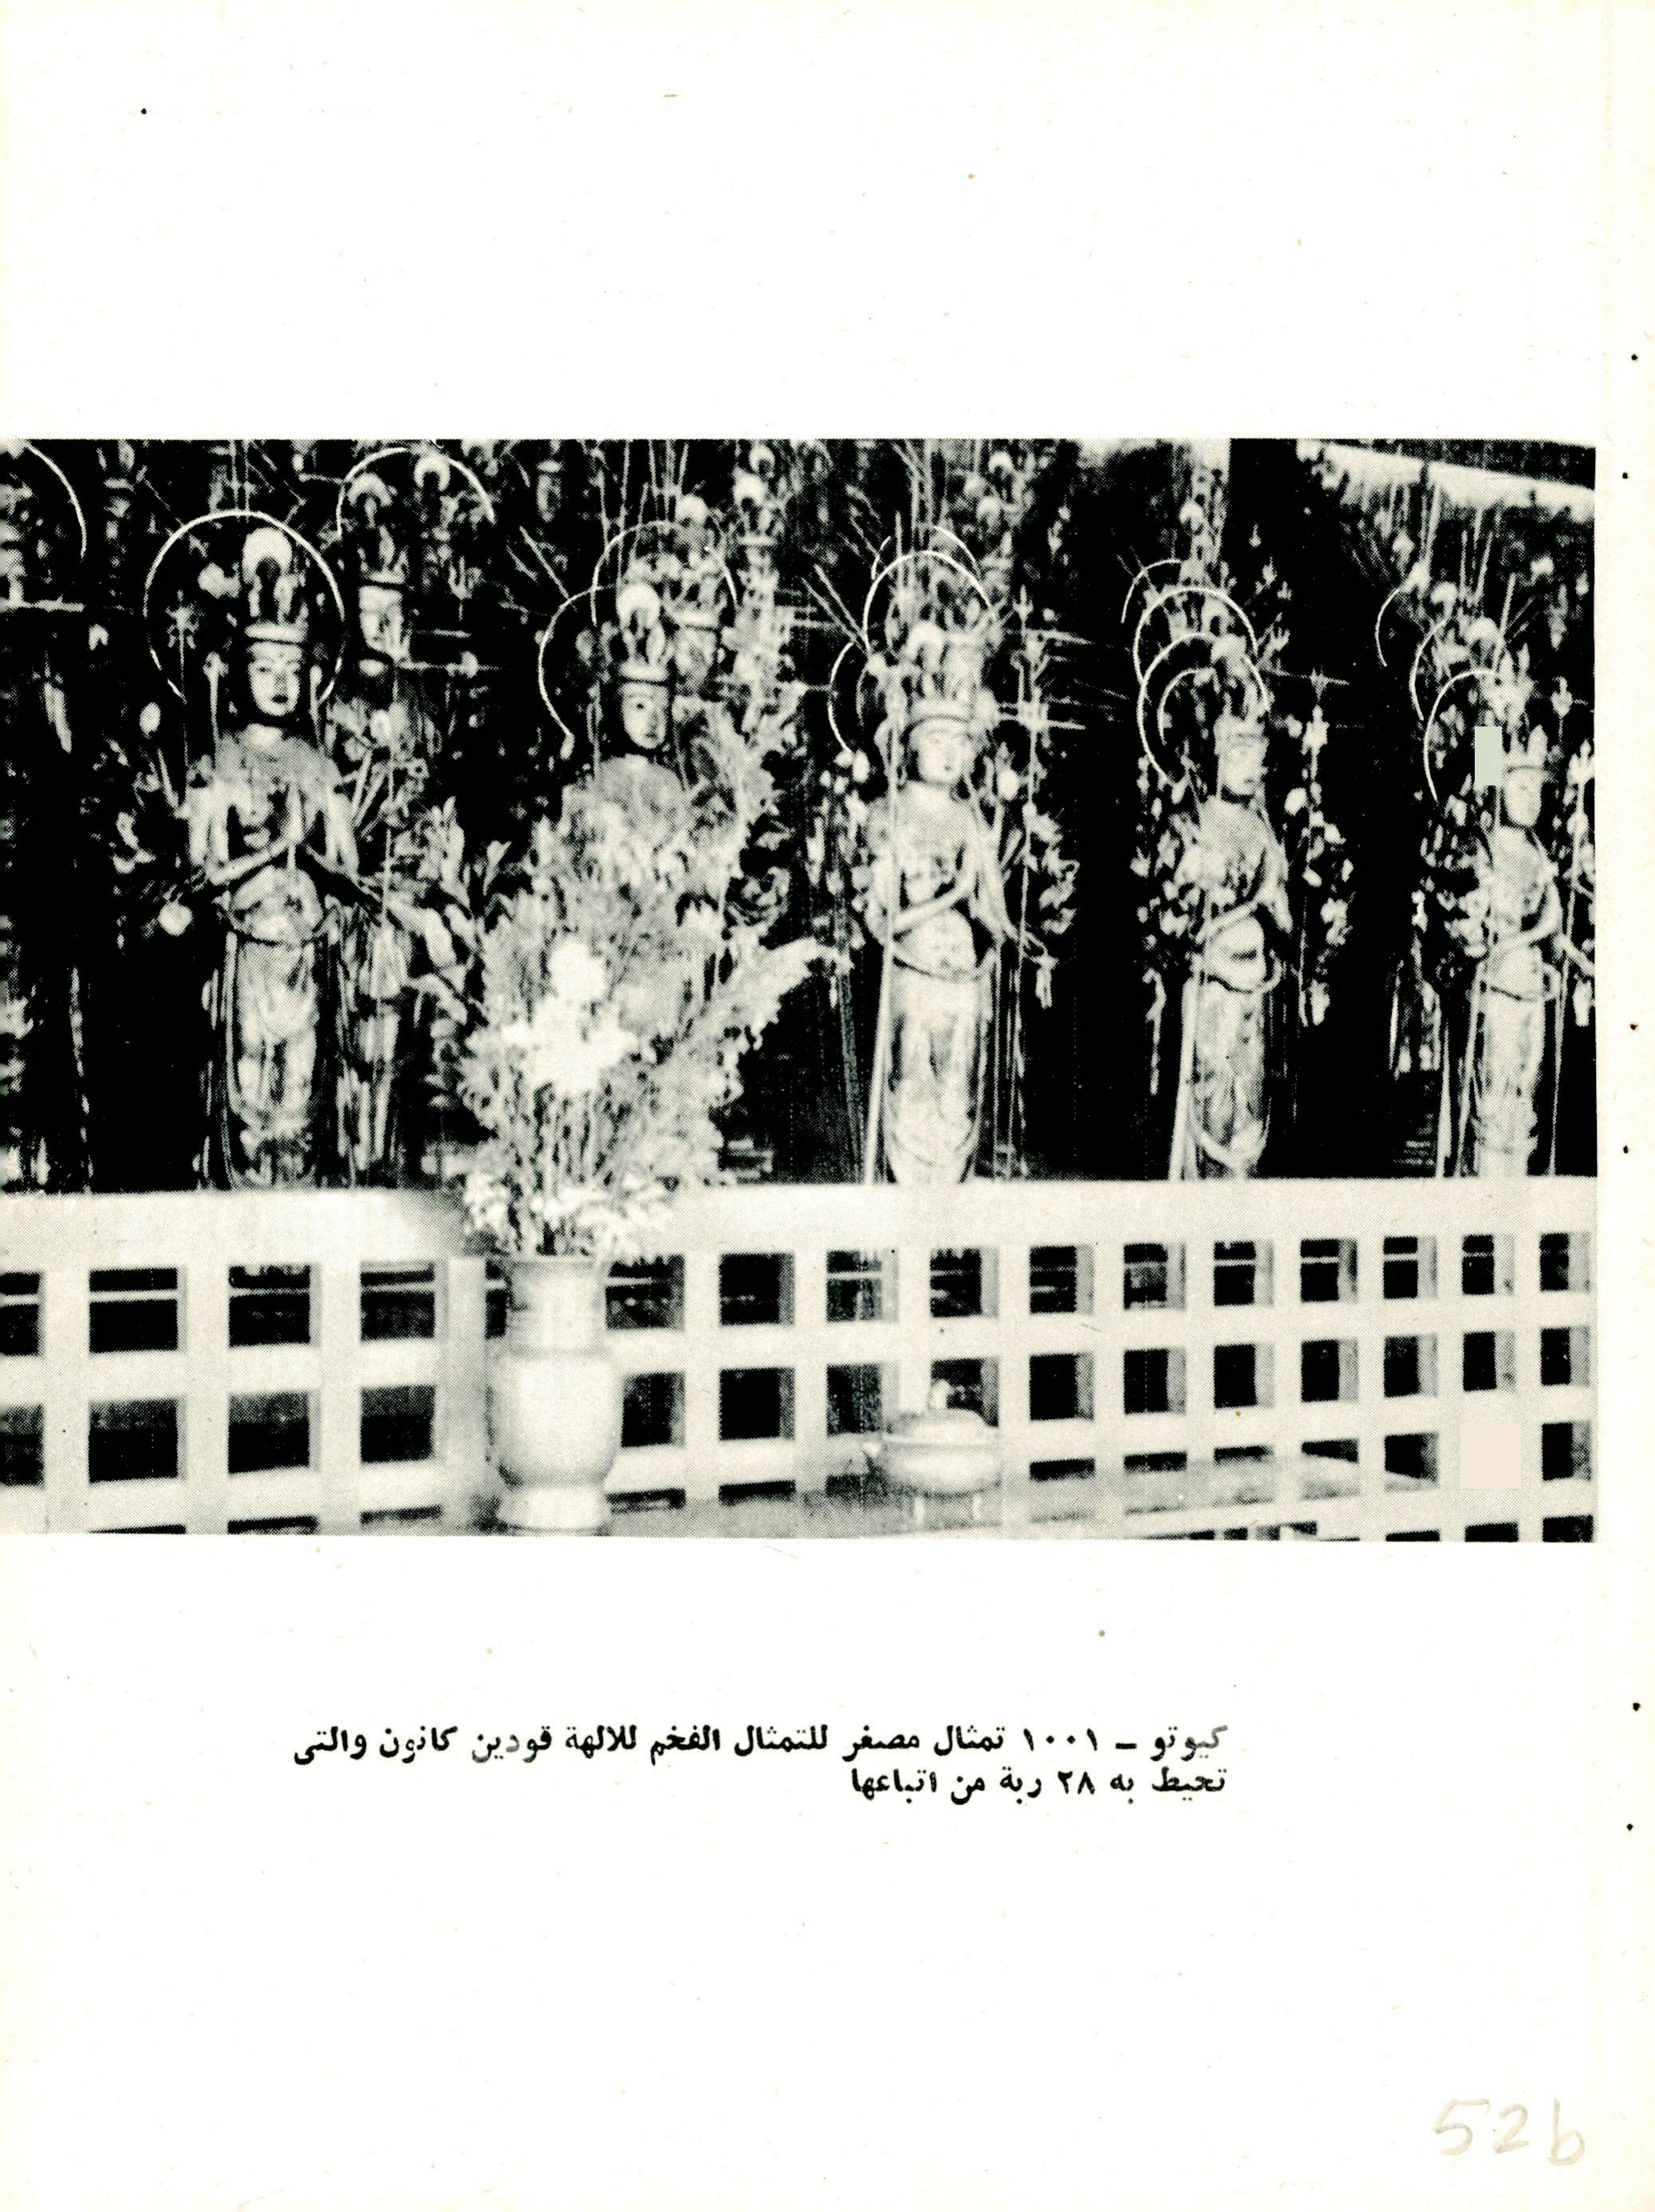 كيوتو – ١٠٠١ تمثال مصغر للتمثال الفخم للالهة قودين كانون والتى
تحيط به ٢٨ ربة من اتباعها
52b